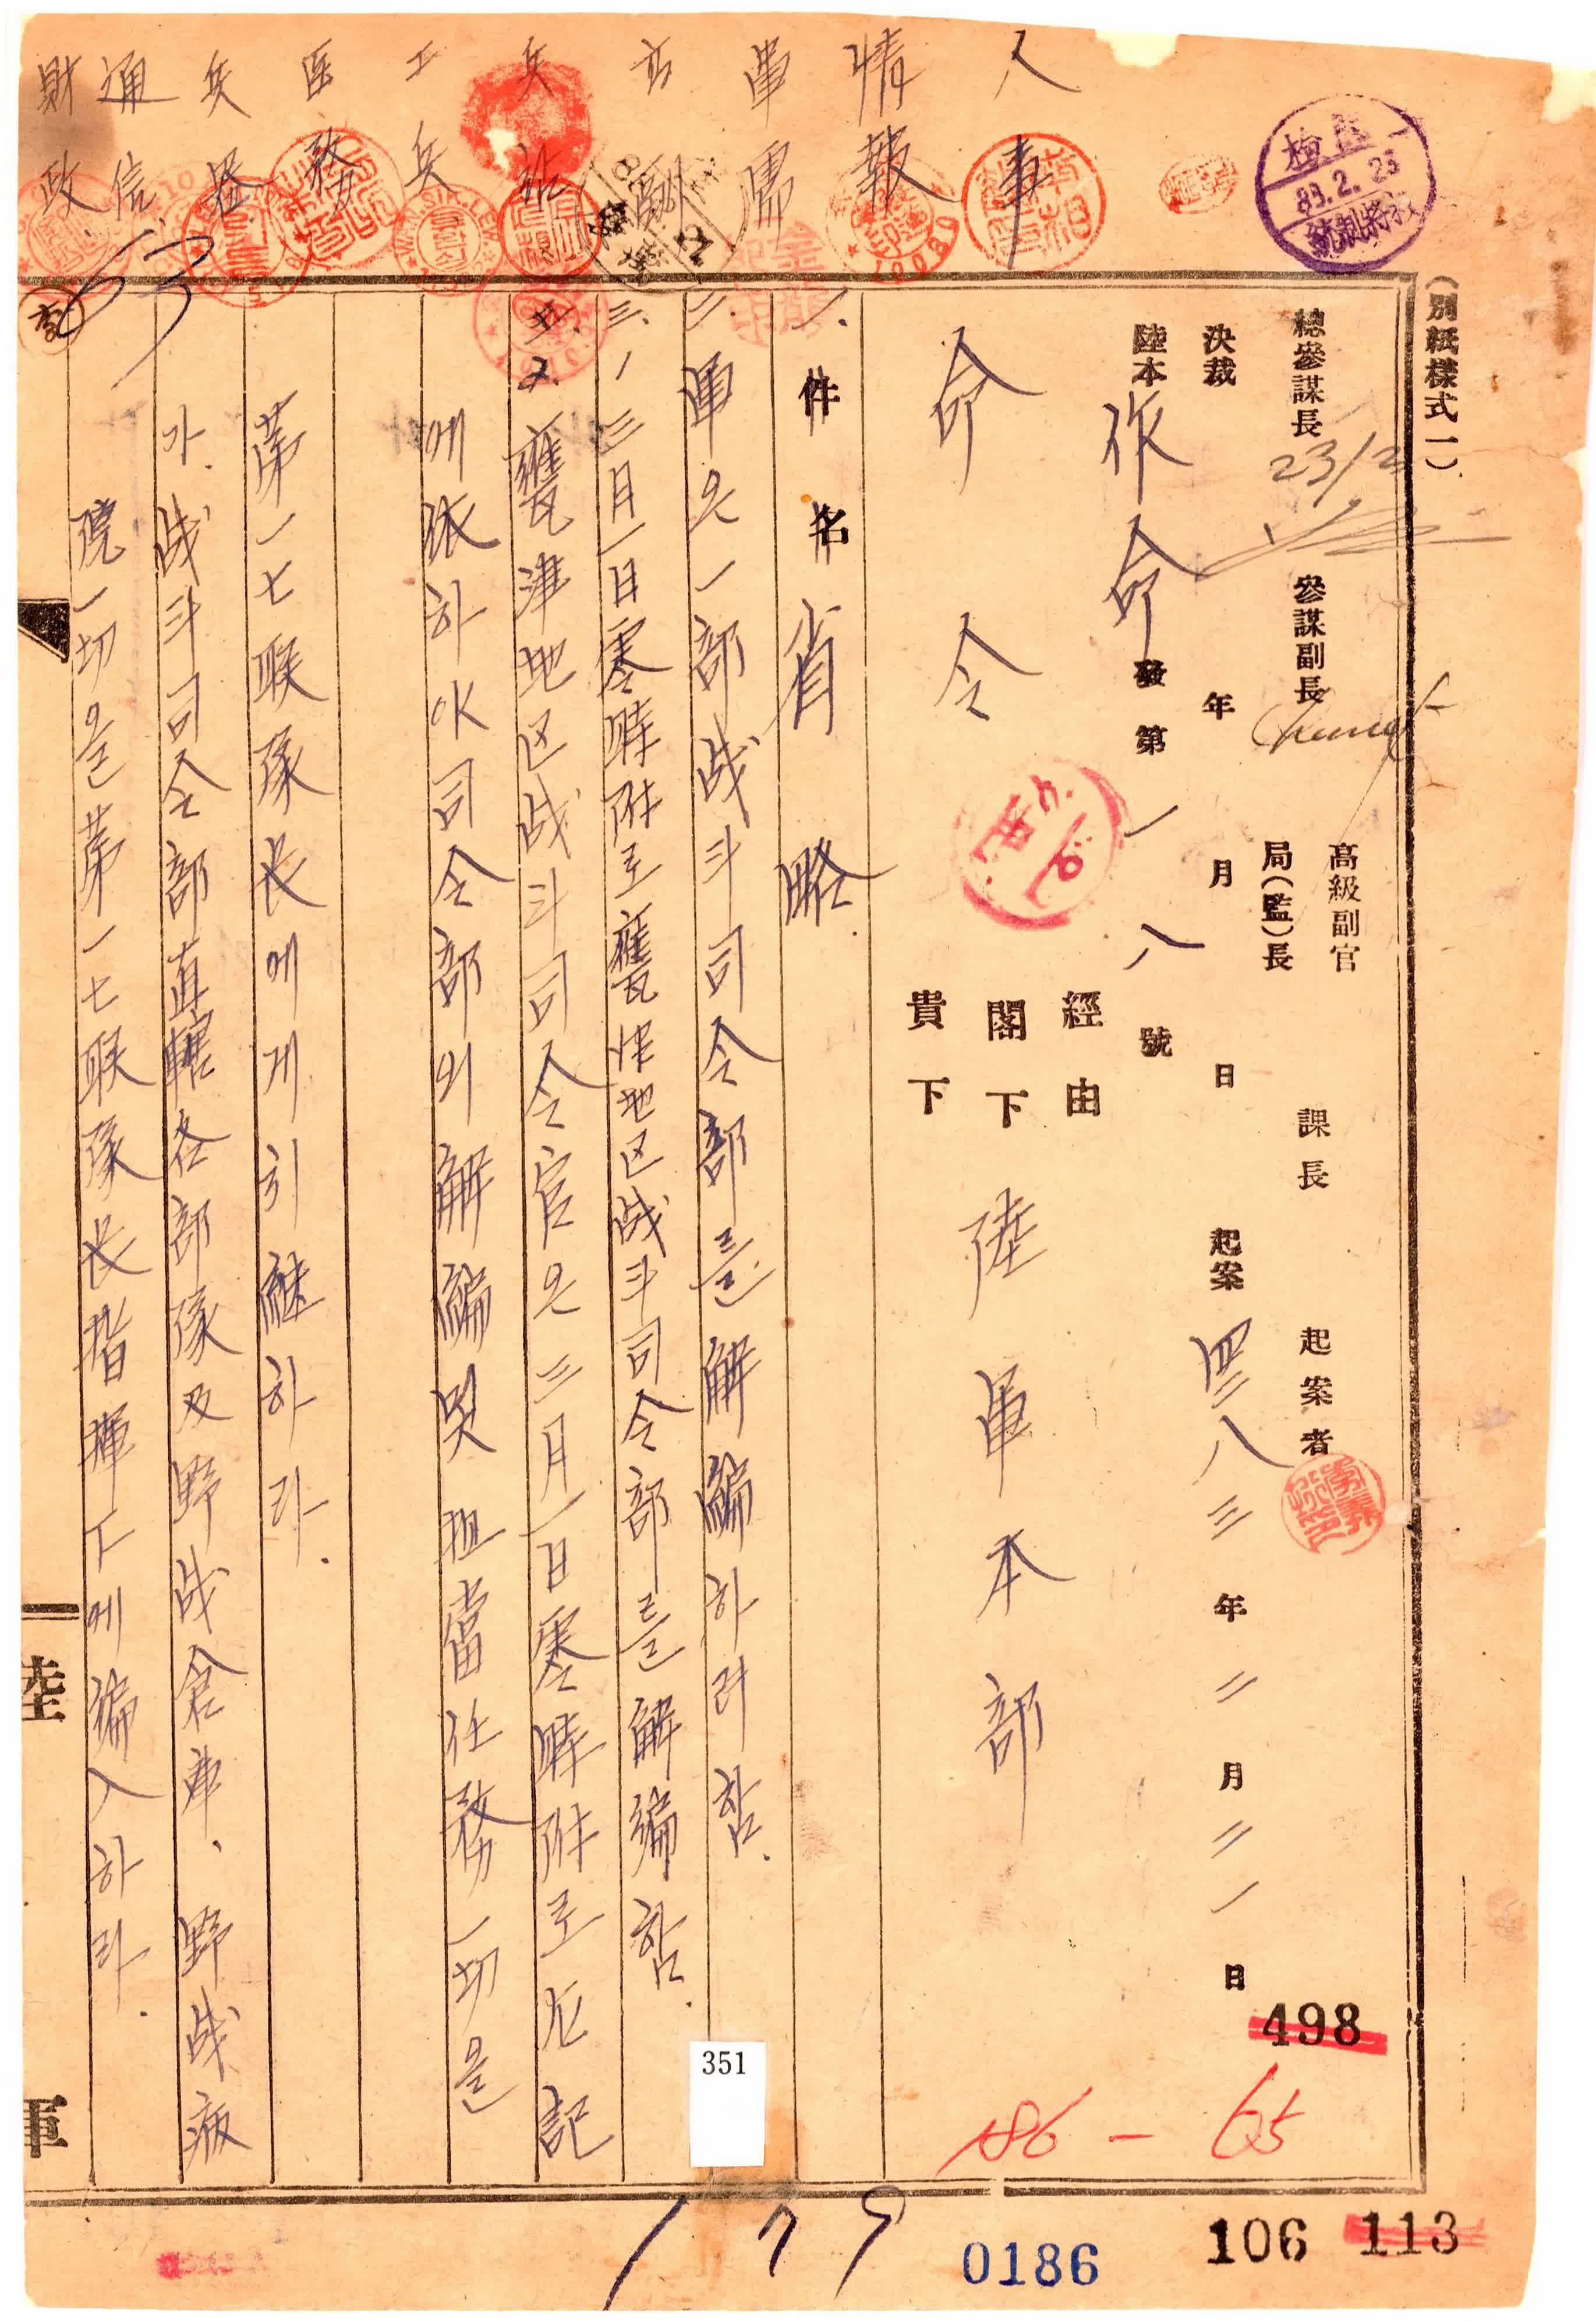 (別紙樣式一)
人事
情報
軍需
高副
兵站
工兵
医務
兵器
通信
財政
檢閱
83.2.23
總參謀長
23/2
參謀副長
高級副官
局(監)長
課長
起案者
決裁
年
月
日
起案
四二八三年二月二一日
陸本
作命
發第
一八
號
經由
閣下
貴下
命令
陸軍本部
一、件名 省略
二、軍은 一部 战斗司令部를 解編하려 함.
三、1 三月一日零時附로 甕津地区战斗司令部를 解編함.
2. 甕津地区战斗司令官은 三月一日零時附로 左記
에 依하야 司令部의 解編 및 担當任務一切을
第一七联隊长에게 引継하라.
가. 战斗司令部 直轄各部隊 及 野战倉庫、野战病
院一切을 第一七联隊长 指揮下에 編入하라.
陸
軍
498
351
186 - 65
179
0186
106
113